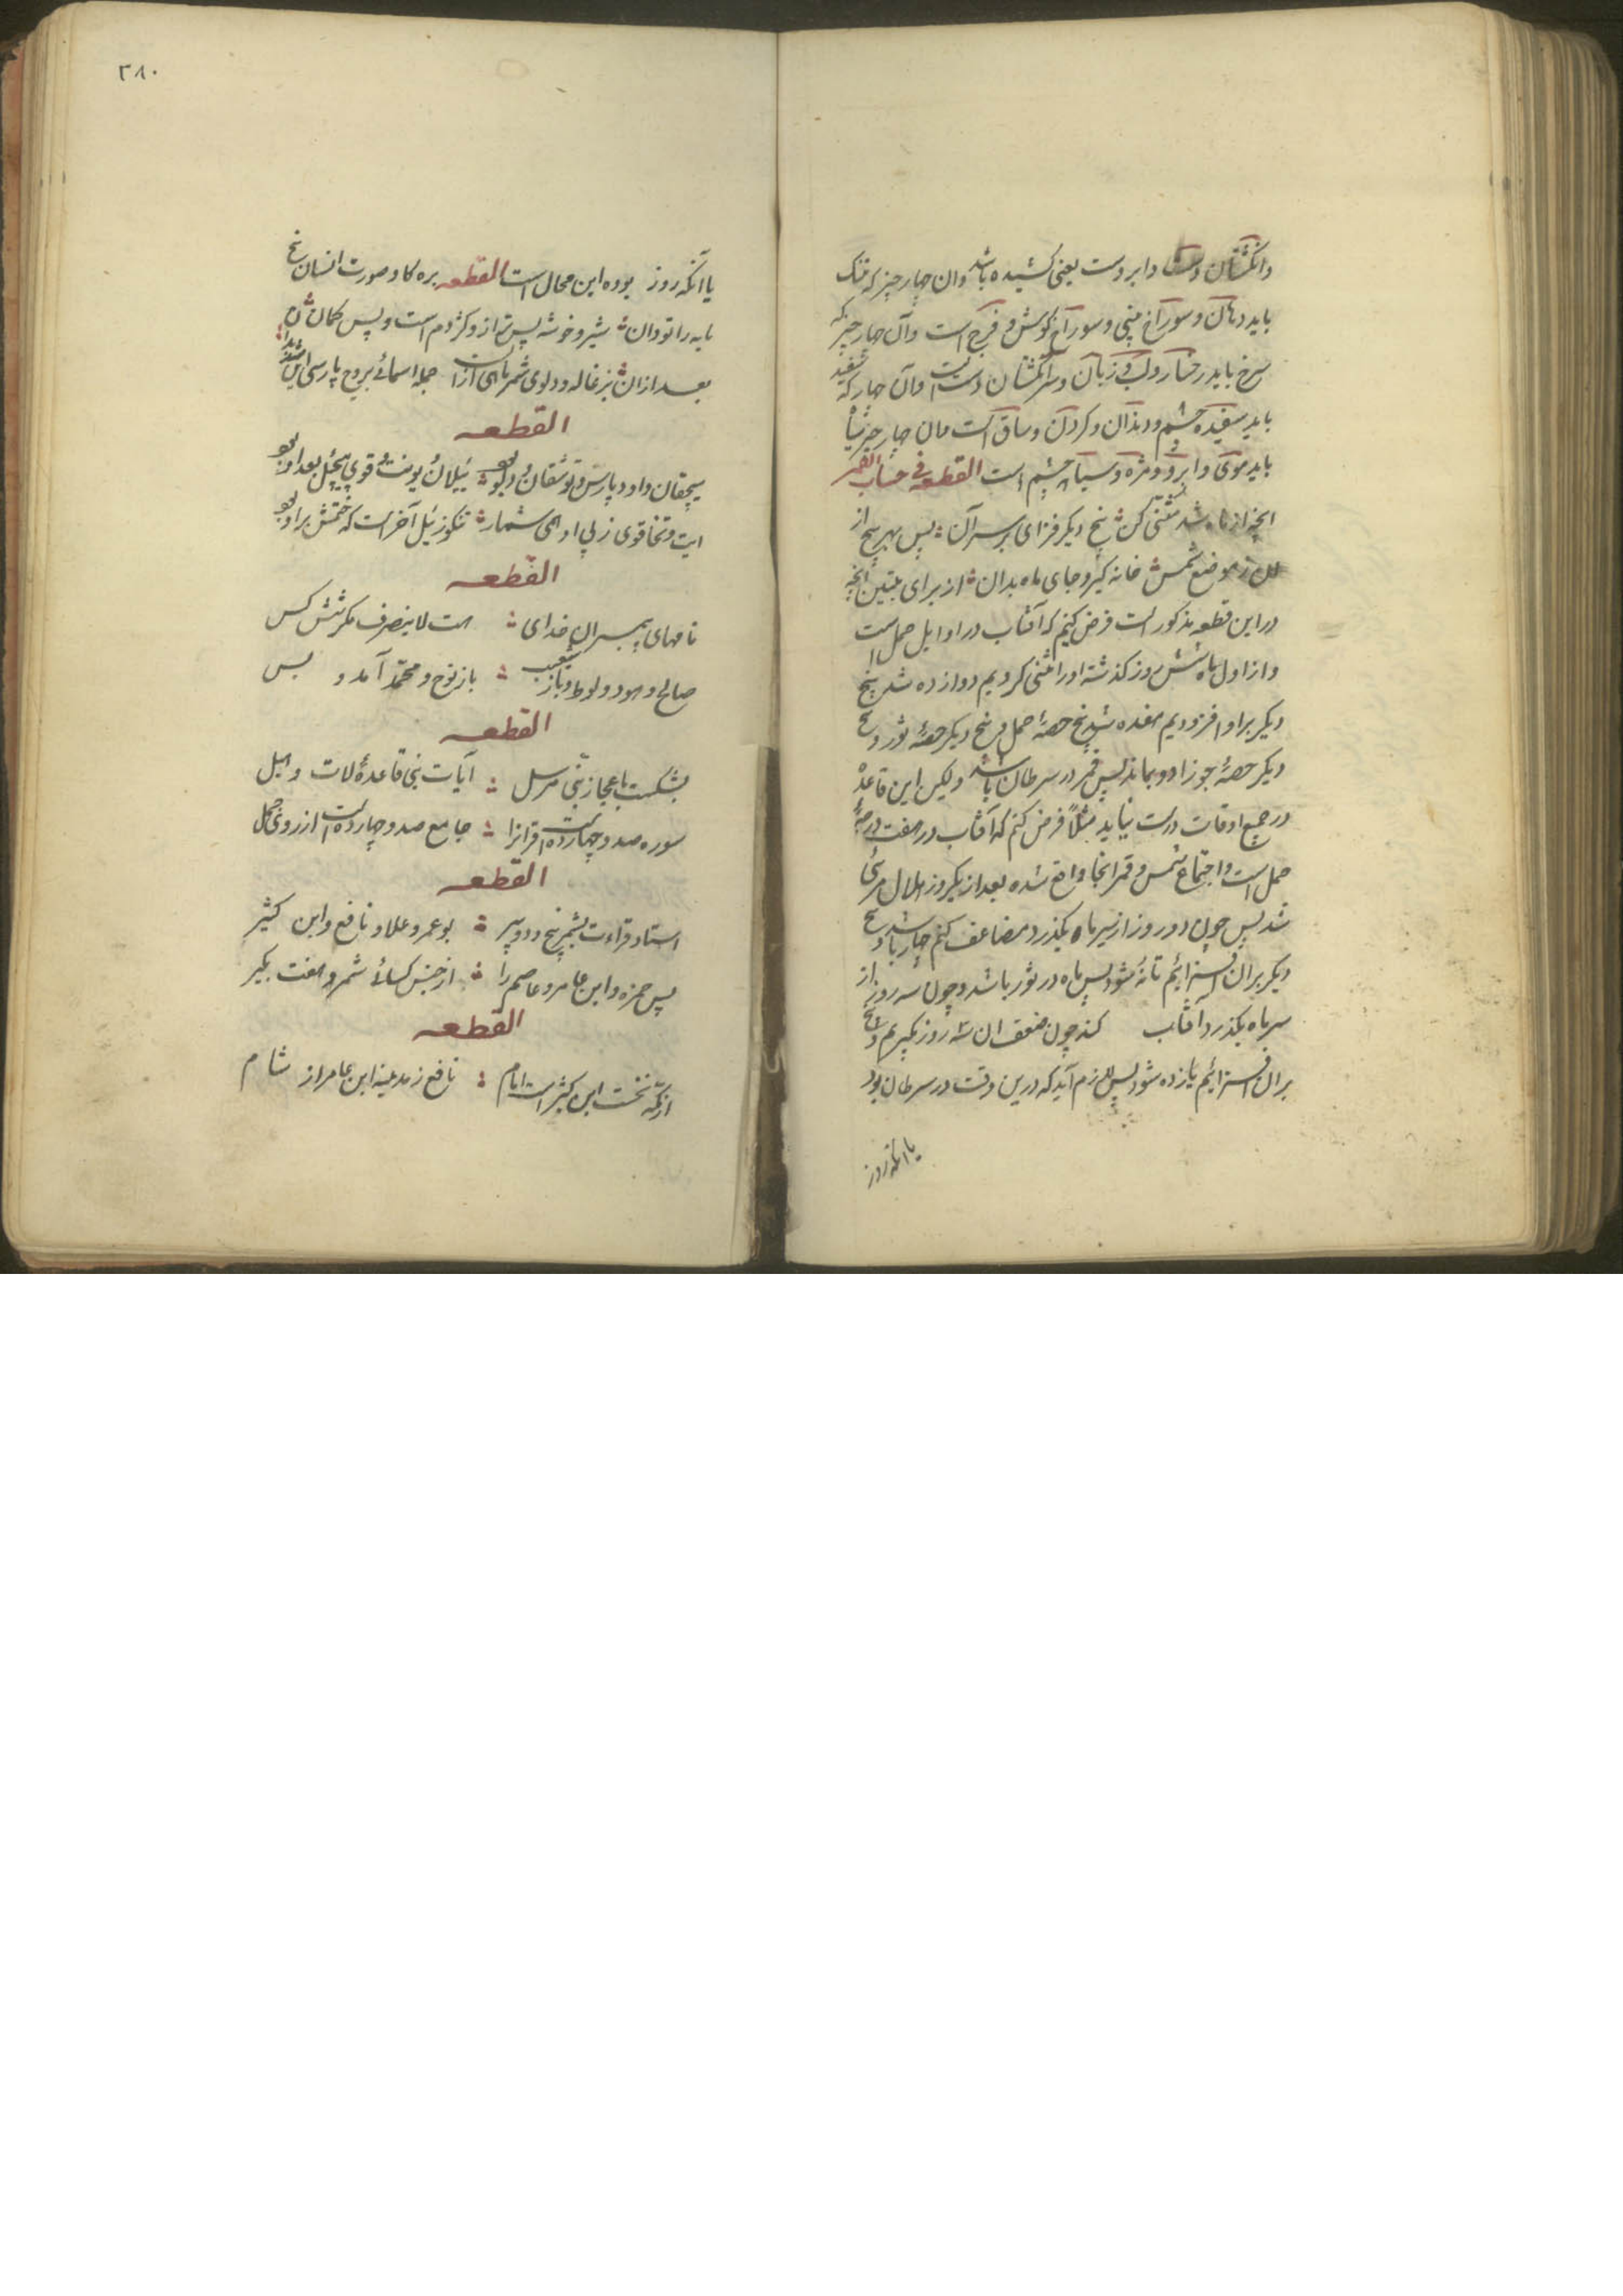 وانکشتان دست و ابروست یعنی کشیده باشد وان چار چیز که تنک
باید دهان و سوراخ بینی و سوراخ کوش و فرج است وآن چار چیز که
سرخ باید رخسار و لب و زبان و سر انکشتان دست است وآن چار که سفید
باید سفیده چشم و دندان و کردن و ساق است وان چار چیز سیاه
باید موی و ابرو و مژه و سیاهی چشم است القطعه فی حساب القمر
انچه از ماه شد مثنی کن پنج دیکر فزای بر سر آن پس بهر پنج از
ان ز موضع شمس خانه کیر و جای ماه بدان از برای تبیین انچه
در این قطعه مذکور است فرض کنیم که آفتاب در اوایل حمل است
و از اول ماه شش روز کذشته او را مثنی کردیم دوازده شد پنج
دیکر بر او افزودیم هفده شد پنج حصهٔ حمل و پنج دیکر حصهٔ ثور و پنج
دیکر حصهٔ جوزا دو بماند پس قمر در سرطان باشد ولیکن این قاعده
در جمیع اوقات درست نیاید مثلاً فرض کنم که آفتاب در هفت درجهٔ
حمل است و اجتماع شمس و قمر انجا واقع شده بعد از یکروز هلال مرئی
شد پس چون دو روز از سر ماه بکذرد مضاعف کنم چار باشد و پنج
دیکر بران افزائیم تا نه شود پس ماه در ثور باشد و چون سه روز از
سر ماه بکذرد آفتاب کند چون ضعف ان سه روز بکیریم و پنج
بران افزائیم یازده شود پس لازم آید که درین وقت در سرطان بود
یا انکه روز
۳۸۰
یا آنکه روز بوده این محال است القطعه بره کاو صورت انسان پنج
پایه را تو دان شیر و خوشه پس ترازو کژدم است و پس کمان
بعد ازان بزغاله و دلوی شمر ماهی ازان جمله اسمائے بروج پارسی است
القطعه
سیچقان و اود و پارس و توشقان و لوی ییلان یونت و قوی پیچیل بعد او بود
ایت و تخاقوی ز پی او همی شمار تنکوز ئیل آخر است که ختمش بر او بود
القطعه
نامهای پیمبران خدای هست لاینصرف مکر شش کس
صالح و هود و لوط و باز شعیب باز نوح و محمّد آمد و بس
القطعه
بشکست باعجاز نبّی مرسل آیات نبی قاعدهٔ لات و هبل
سوره صد و چهارده است قرانرا جامع صد و چارده است از روی جمل
القطعه
استاد قراءت بشمر پنج و دو پیر بوعمرو علا و نافع و ابن کثیر
پس حمزه و ابن عامر و عاصم را از جنس کسائ شمر و هفت بکیر
القطعه
از مکّه نخست ابن کثیر است امام نافع ز مدینه ابن عامر از شام